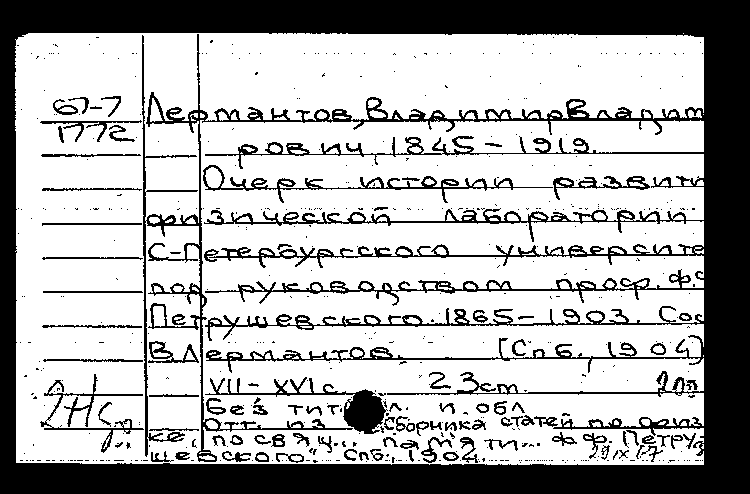 67-7
1772
Лермантов, Владимир Владим
рович, 1845-1919.
Очерк истории развити
физической лаборатории
С-Петербургсского университе
под руководством проф. Ф.Ф
Петрушевского. 1865-1903. Сос
В.Лермантов. [Спб., 1904]
VII-XVIс. 23cm.
Без тит. л. и обл
Отт. из "Сборника статей по физ
ке, посвящ... памяти... Ф.Ф. Петру
шевского". Спб., 1904.
29 IX 67